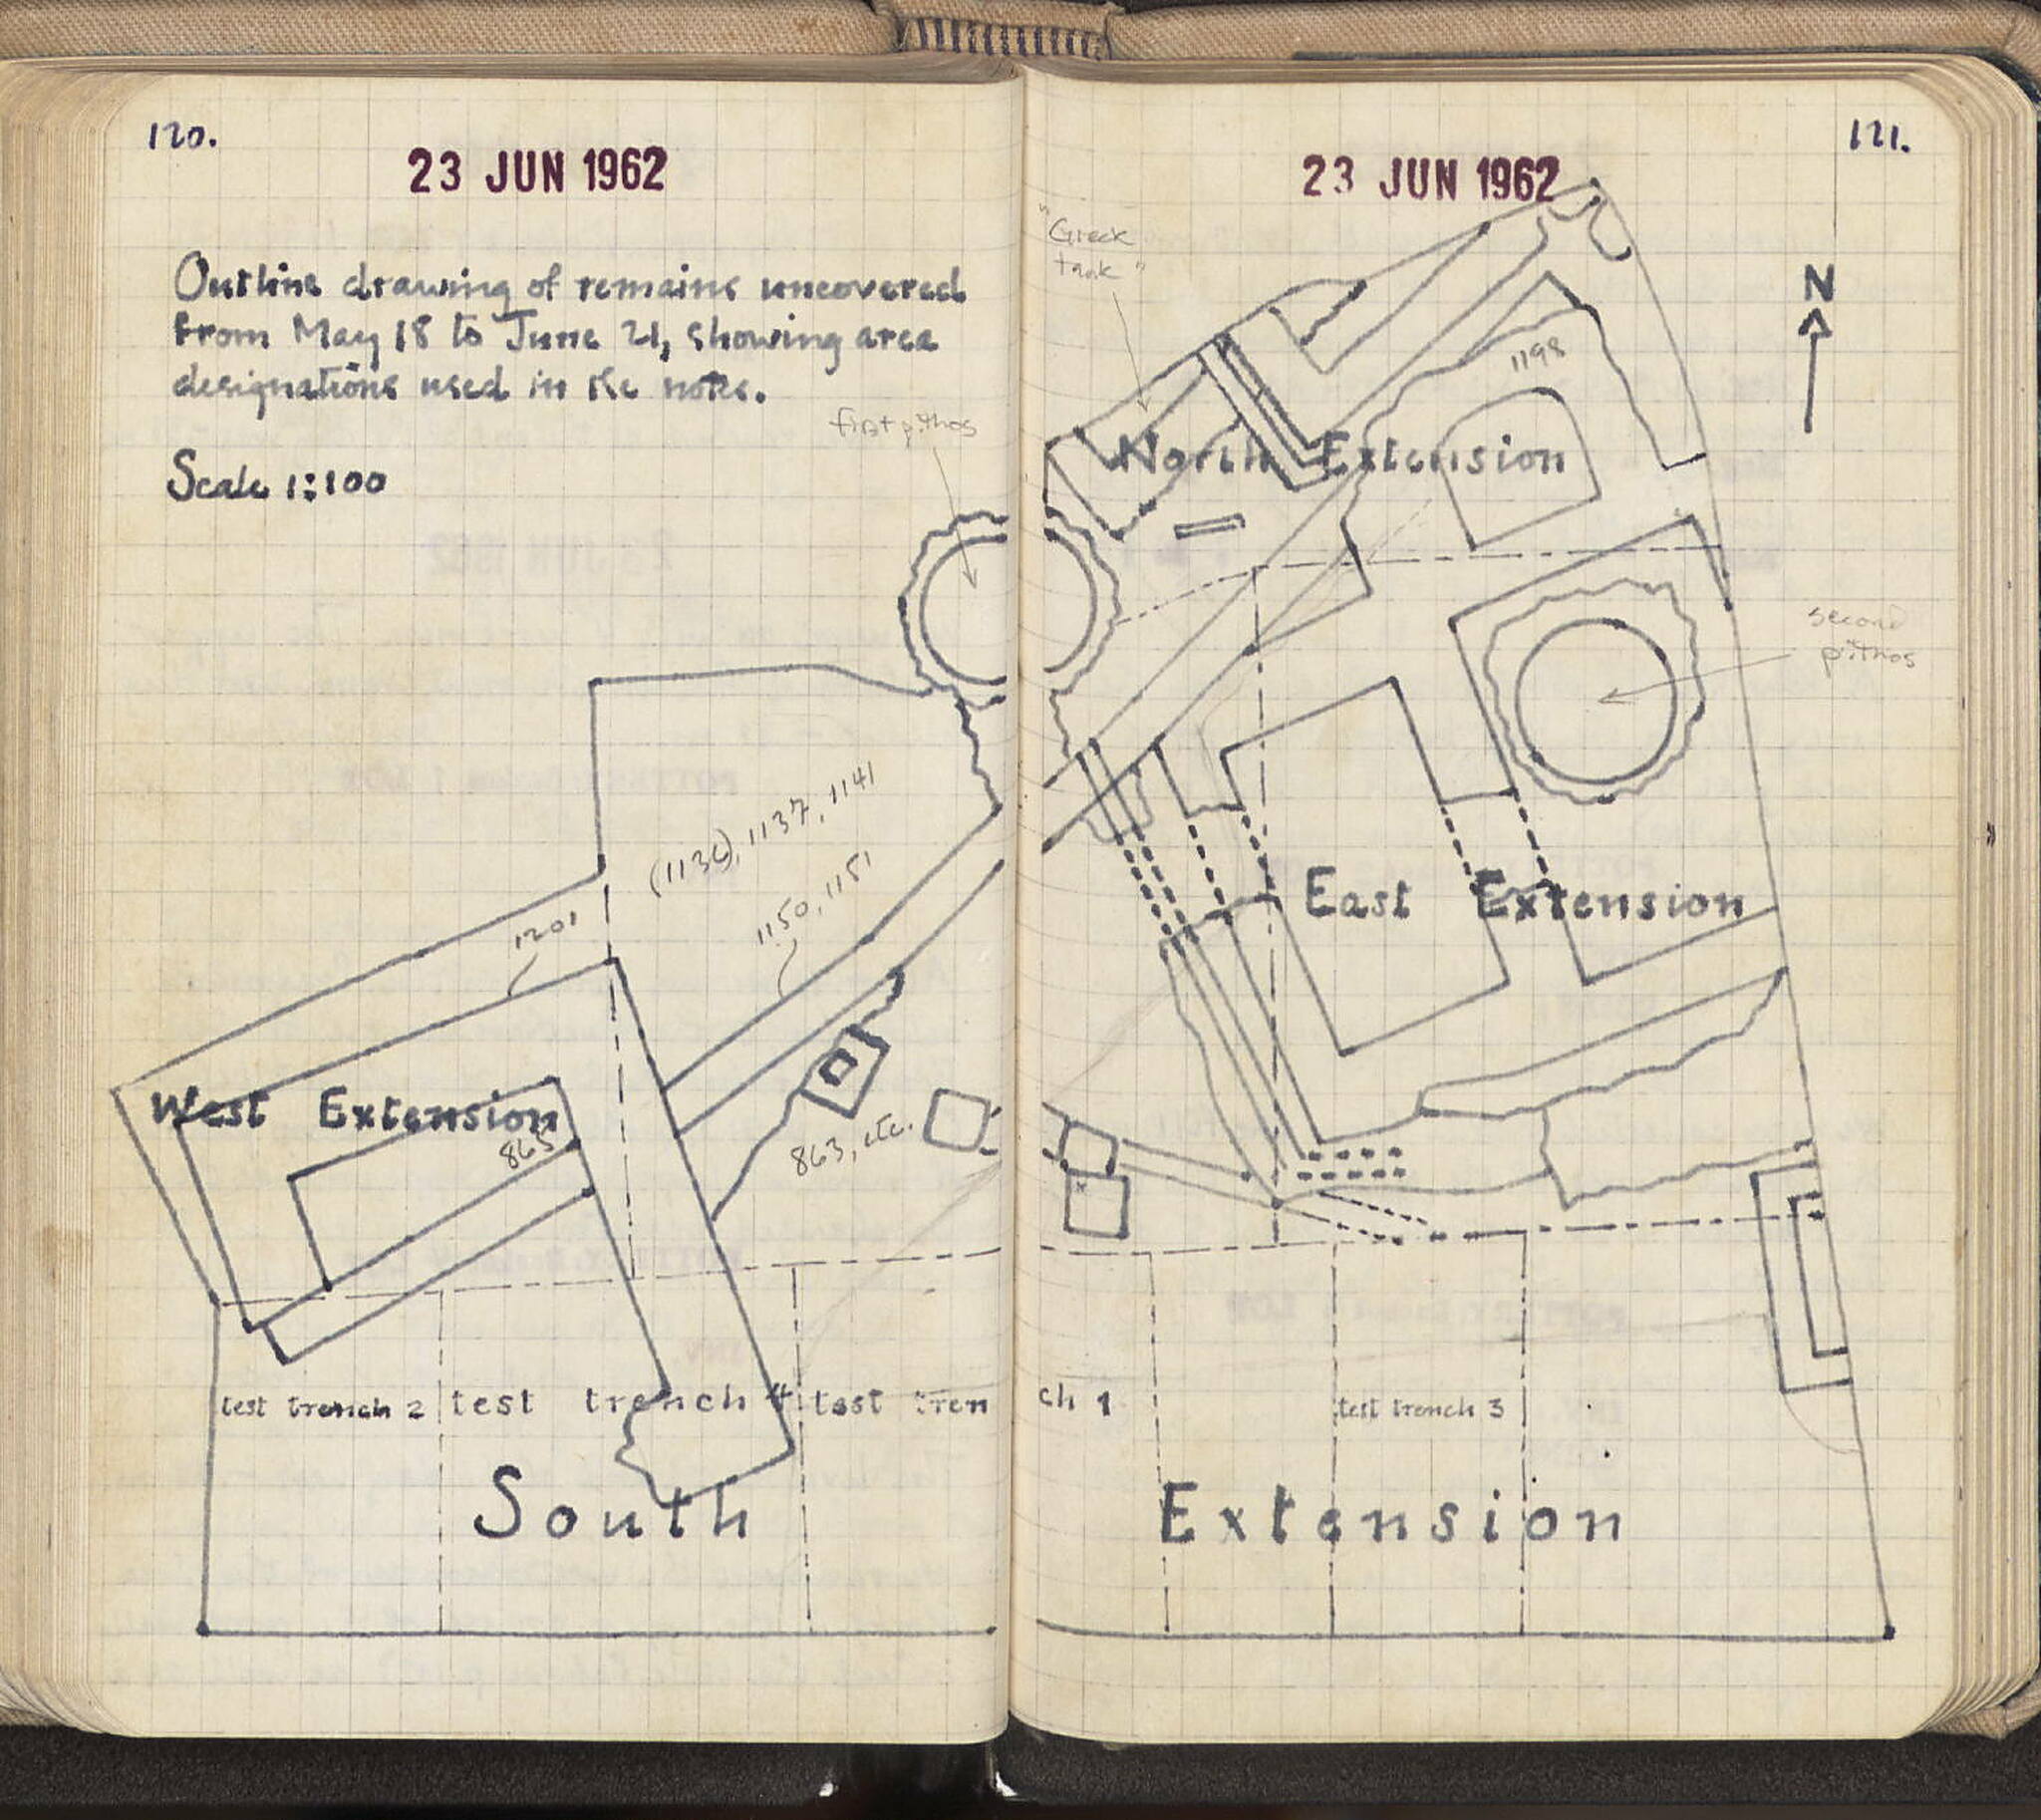 120.
23 JUN 1962
Outline drawing of remains uncovered
from May 18 to June 21, showing area
designations used in the notes.
Scale 1:100
first pithos
(1136), 1137, 1141
1150, 1151
1201
West Extension
865
863, etc.
test trench 2
test trench 4
test tren
South
121.
23 JUN 1962
"Greek
tank"
N
1198
North Extension
second
pithos
East Extension
ch 1
test trench 3
Extension